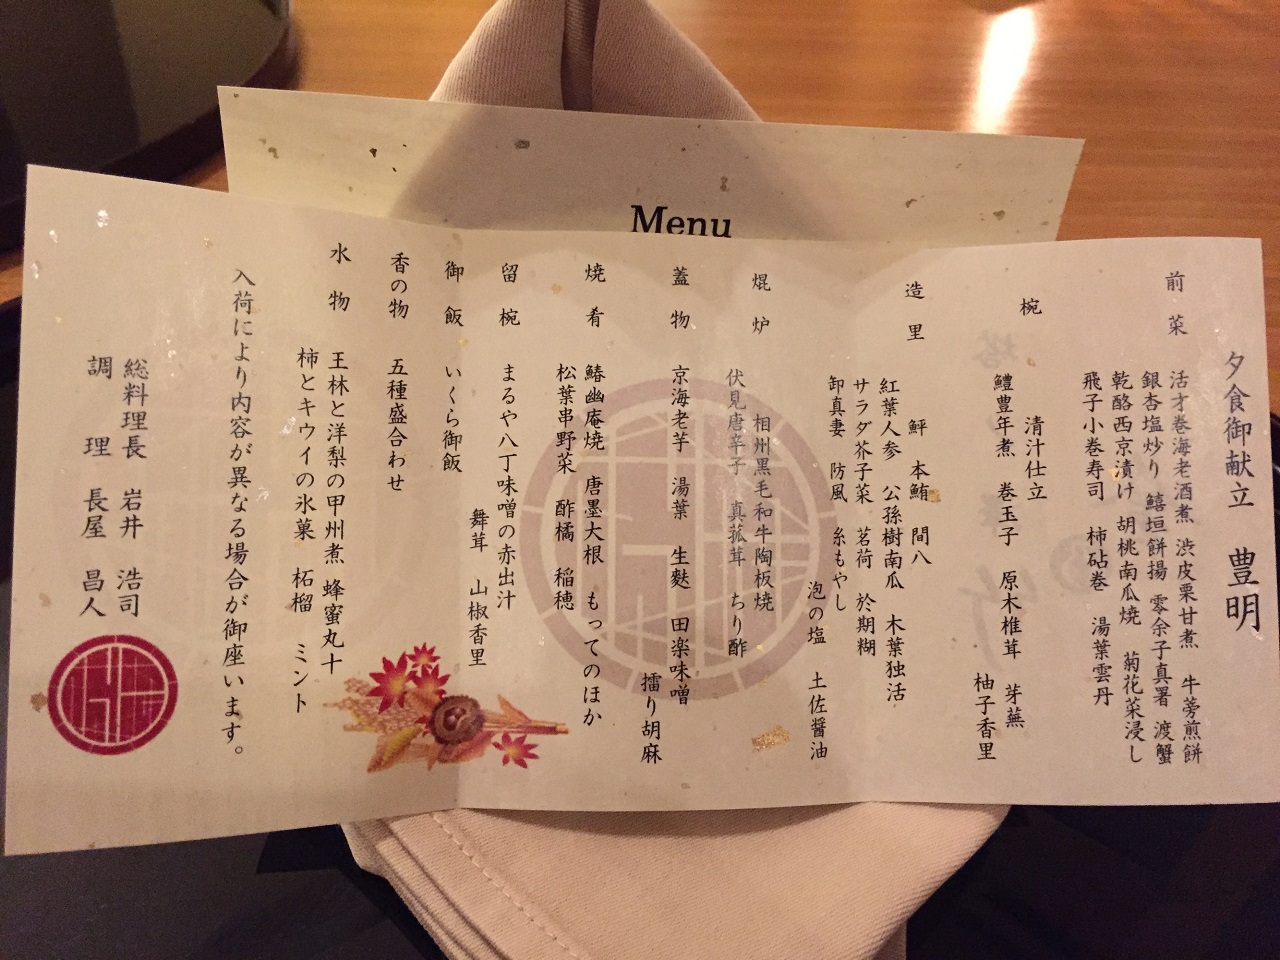 Menu
夕食御献立　豊明
前菜
活才巻海老酒煮　渋皮栗甘煮　牛蒡煎餅
銀杏塩炒り　鱚垣餅揚　零余子真署　渡蟹
乾酪西京漬け　胡桃南瓜焼　菊花菜浸し
飛子小巻寿司　柿砧巻　湯葉雲丹
椀
清汁仕立
鱧豊年煮　巻玉子　原木椎茸　芽蕪
柚子香里
造里
鮃　本鮪　間八
紅葉人参　公孫樹南瓜　木葉独活
サラダ芥子菜　茗荷　於期糊
卸真妻　防風　糸もやし
泡の塩　土佐醤油
焜炉
相州黒毛和牛陶板焼
伏見唐辛子　真菰茸　ちり酢
蓋物
京海老芋　湯葉　生麩　田楽味噌
擂り胡麻
焼肴
鰆幽庵焼　唐墨大根　もってのほか
松葉串野菜　酢橘　稲穂
留椀
まるや八丁味噌の赤出汁
舞茸　山椒香里
御飯
いくら御飯
香の物
五種盛合わせ
水物
王林と洋梨の甲州煮　蜂蜜丸十
柿とキウイの氷菓　柘榴　ミント
入荷により内容が異なる場合が御座います。
総料理長　岩井　浩司
調理　長屋　昌人